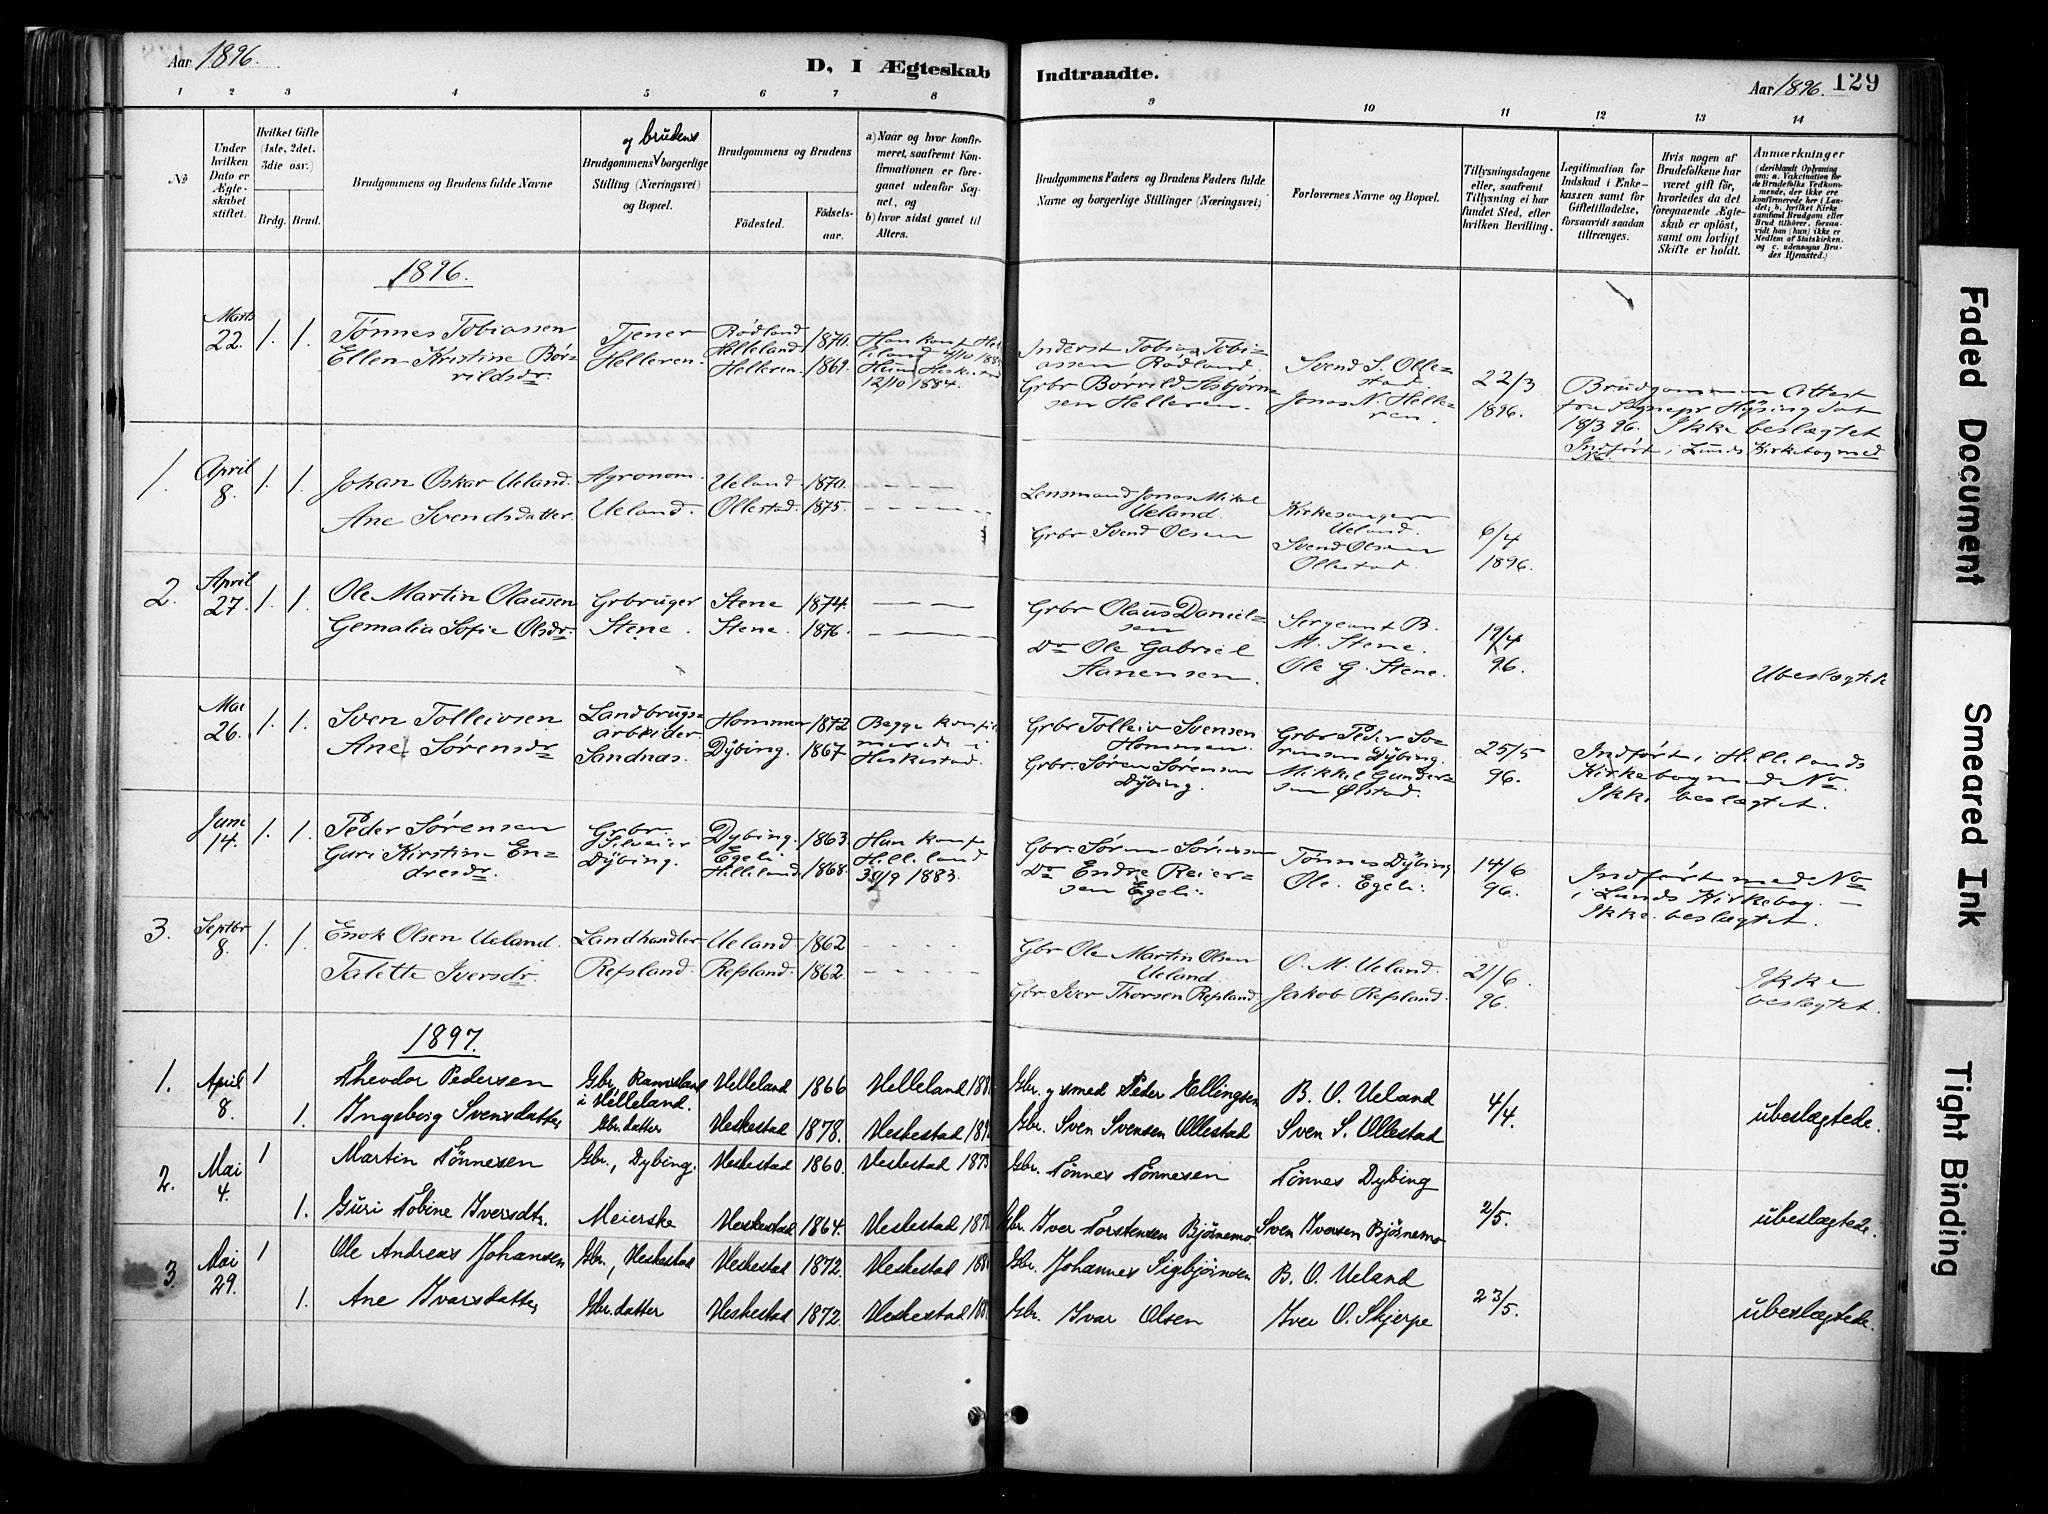 Aar 1896.
D, I Ægteskab
Indtraadte.
Aar 1896. 129
1 2 3 4 5 6 7 8
9 10 11 12 13 14
№
Under hvilken Dato er Ægteskabet stiftet.
Hvilket Gifte (1ste, 2det, 3die osv.)
Brdg. Brud.
Brudgommens og Brudens fulde Navne
og brudens
Brudgommens borgerlige Stilling (Næringsvei) og Bopæl.
Brudgommens og Brudens
Fødested.
Fødsels-aar.
a) Naar og hvor konfirmeret, saafremt Konfirmationen er foregaaet udenfor Sognet, og
b) hvor sidst gaaet til Alters.
Brudgommens Faders og Brudens Faders fulde Navne og borgerlige Stillinger (Næringsvei)
Forlovernes Navne og Bopæl.
Tillysningsdagene eller, saafremt Tillysning ei har fundet Sted, efter hvilken Bevilling.
Legitimation for Indskud i Enkekassen samt for Giftetilladelse, forsaavidt saadan tiltrænges.
Hvis nogen af Brudefolkene har været gift før, hvorledes da det foregaaende Ægteskab er opløst, samt om lovligt Skifte er holdt.
Anmærkninger
(deriblandt Oplysning om: a. Vakcination for de Brudefolks Vedkommende, der ikke ere konfirmerede her i Landet; b. hvilket Kirkesamfund Brudgom eller Brud tilhører, forsaavidt han (hun) ikke er Medlem af Statskirken, og c. udensogns Brudes Hjemsted.)
1896.
Marts 22. 1. 1. Tønnes Tobiassen Tjener Rødland Helleland 1870.
Ellen Kristine Børrildsdr. Helleren. Helleren. 1869. Hun Heskestad 12/10 1884.
Inderst Tobias Tobiassen Rødland. Svend S. Ollestad. 22/3 1896.
Grbr Børrild Asbjørnsen Helleren. Jonas N. Helleren
Brudgommen Attest fra Sognepr Hysing dat 18/3 96. Ikke beslægtet
Indført i Lunds Kirkebog med No.
1. April 8. 1. 1. Johan Oskar Ueland. Agronom. Ueland. 1870. - - - -
Ane Svendsdatter. Ueland. Ollestad. 1875. - - - -
Lensmand Jonas Mikal Ueland. Kirkesanger Ueland. 6/4 1896.
Grbr Svend Olsen Svend Olsen Ollestad.
2. April 27. 1. 1. Ole Martin Olausen Grbruger Stene 1874. - - -
Gemalia Sofie Olsdr. Stene. Stene. 1876. - - -
Grbr Olaus Danielsen Sergeant B. M. Stene. 19/4 96.
Do Ole Gabriel Aanensen. Ole G. Stene. Ubeslægtede
Mai 26. 1. 1. Sven Tolleivsen Landbrugsarbeider Hommen 1872 Begge konfirmerede i Heskestad.
Ane Sørensdr Sandnæs. Dybing. 1867
Grbr Tolleiv Svensen Hommen. Grbr Peder Sørensen Dybing. 25/5 96.
Grbr. Søren Sørensen Dybing. Mikkel Gundersen Ølstad.
Indført i Hellelands Kirkebog med No.
Ikke beslægtet.
Juni 14. 1. 1. Peder Sørensen Grbr Selveier Dybing. Dybing. 1863
Guri Kirstine Endresdr. Egeli Helleland 1868. Hun konf. Helleland 30/9 1883.
Gbr. Søren Sørensen Tønnes Dybing 14/6 96.
Do Endre Reiersen Egeli. Ole Egeli.
Indført med No i Lunds Kirkebog. —
Ikke beslægtet.
3. Septbr 8. 1. 1. Enok Olsen Ueland. Landhandler Ueland. 1862 - - - -
Talette Iversdr. Refsland. Refsland. 1862. - - - -
Gbr Ole Martin Olsen Ueland. O. M. Ueland. 21/6 96.
Gbr. Iver Thorsen Refsland. Jakob Refsland. Ikke beslægtet.
1897.
1. April 8. 1 Theodor Pedersen Gbr, Ramsland i Helleland. Helleland 1866 Helleland
Gbr. og smed Peder Ellingsen B. O. Ueland 4/4
1. Ingeborg Svensdatter Gbr.datter Heskestad 1878. Heskestad
Gbr. Sven Svensen Ollestad Sven S. Ollestad ubeslægtede.
2. Mai 4. 1 Martin Tønnesen Gbr., Dybing. Heskestad 1860. Heskestad
Gbr. Tønnes Tønnesen Tønnes Dybing 2/5.
1. Guri Tobine Iversdtr. Meierske Heskestad 1864. Heskestad
Gbr. Iver Torstensen Bjørnemo Sven Iversen Bjørnemo ubeslægtede.
3 Mai 29. 1 Ole Andreas Johansen Gbr., Heskestad Heskestad 1872. Heskestad
Gbr. Johannes Sigbjørnsen B. O. Ueland 23/5.
1. Ane Ivarsdatter Gbr.datter Heskestad 1872. Heskestad
Gbr. Ivar Olsen Iver O. Skjerpe ubeslægtede.
Faded Document
Smeared Ink
Tight Binding